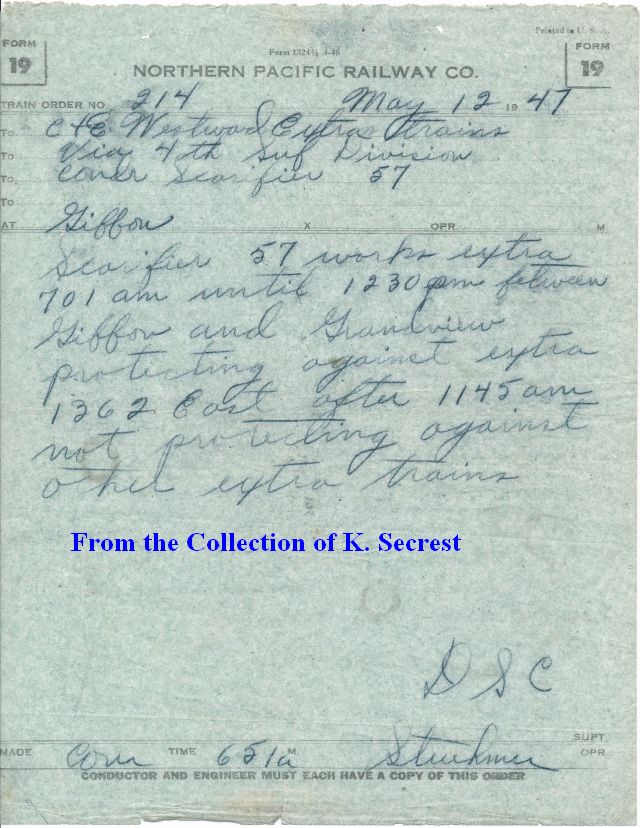 Printed in U. S. A.
FORM 19
Form 1324½ 4-46
FORM 19
NORTHERN PACIFIC RAILWAY CO.
TRAIN ORDER NO. 214 May 12 1947
To C+E Westward Extra trains
To Via 4th Sub Division
To Condr Scarifier 57
To
AT Gibbon X OPR. M
Scarifier 57 works extra
701 am until 1230 pm between
Gibbon and Grandview
protecting against extra
1362 East after 1145 am
not protecting against
other extra trains
From the Collection of K. Secrest
D S C
SUPT
MADE Com TIME 651a M. OPR.
CONDUCTOR AND ENGINEER MUST EACH HAVE A COPY OF THIS ORDER